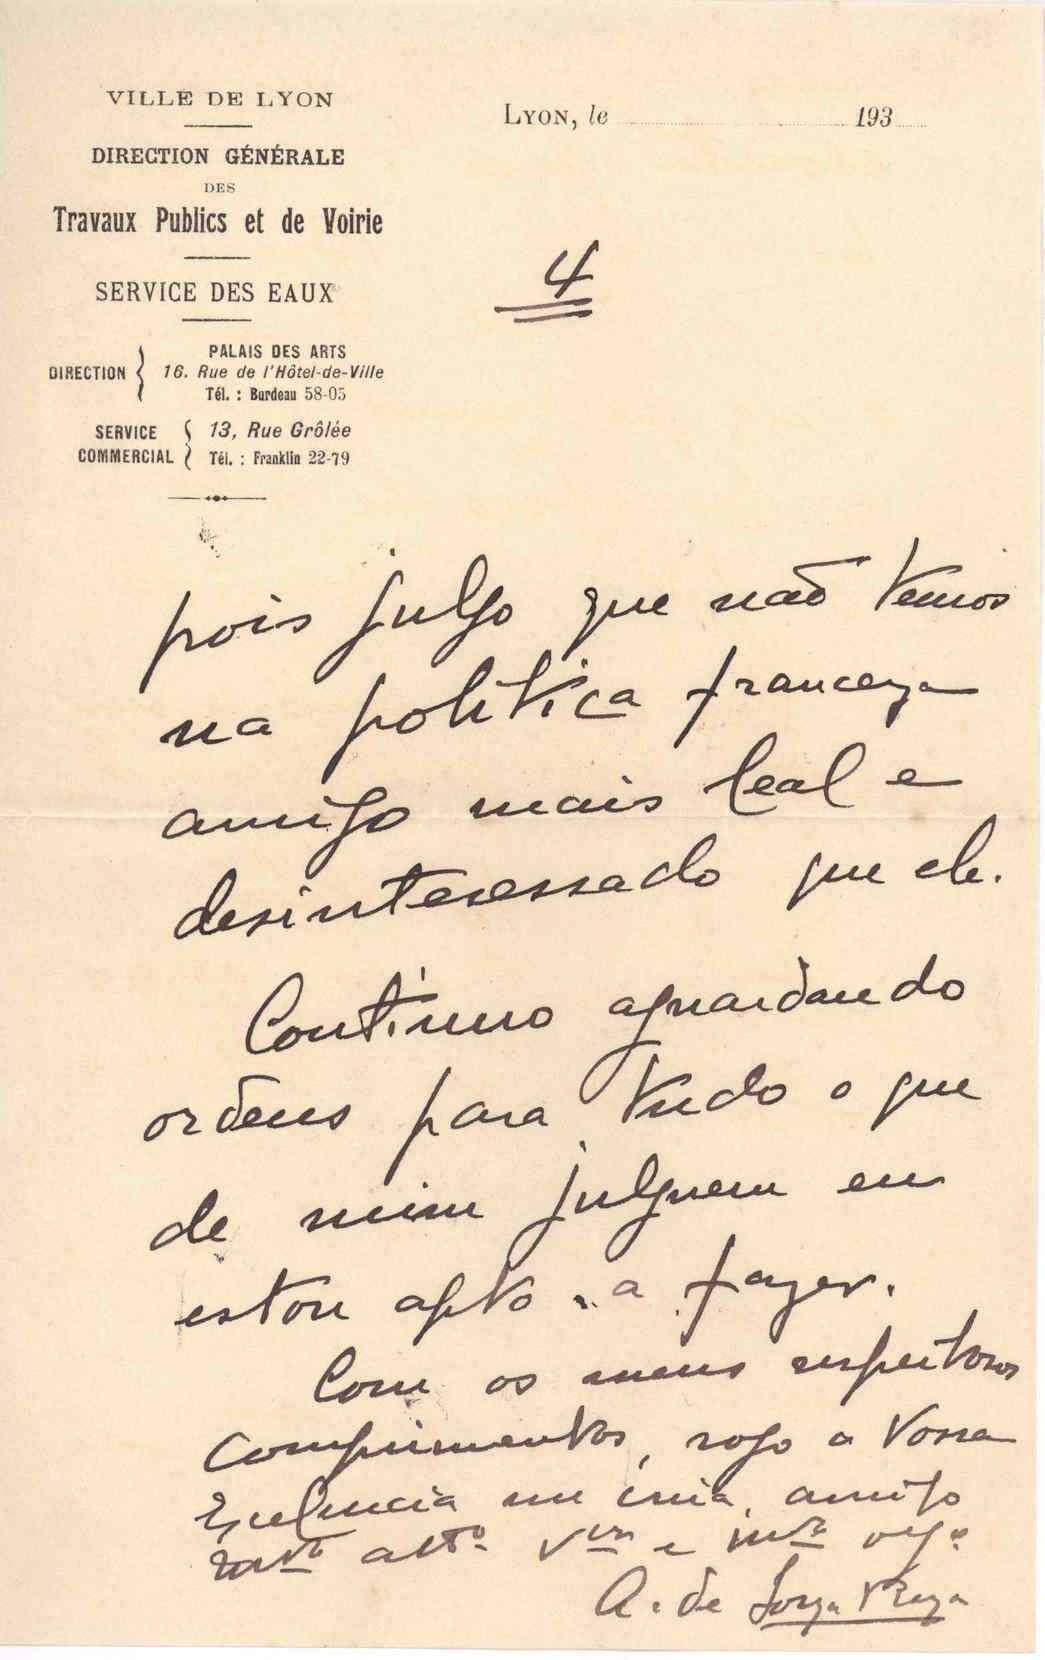 VILLE DE LYON
DIRECTION GÉNÉRALE
DES
Travaux Publics et de Voirie
SERVICE DES EAUX
DIRECTION
PALAIS DES ARTS
16. Rue de l'Hôtel-de-Ville
Tél. : Burdeau 58-05
SERVICE COMMERCIAL
13, Rue Grôlée
Tél. : Franklin 22-79
LYON, le 193
4
pois julgo que não temos
na politica franceza
amigo mais leal e
desinteressado que ele.
Continuo aguardando
ordens para tudo o que
de mim julguem eu
estou apto a fazer.
Com os meus respeitosos
comprimentos, rogo a Vossa
amigo
mto atto. vor e mto
A. de